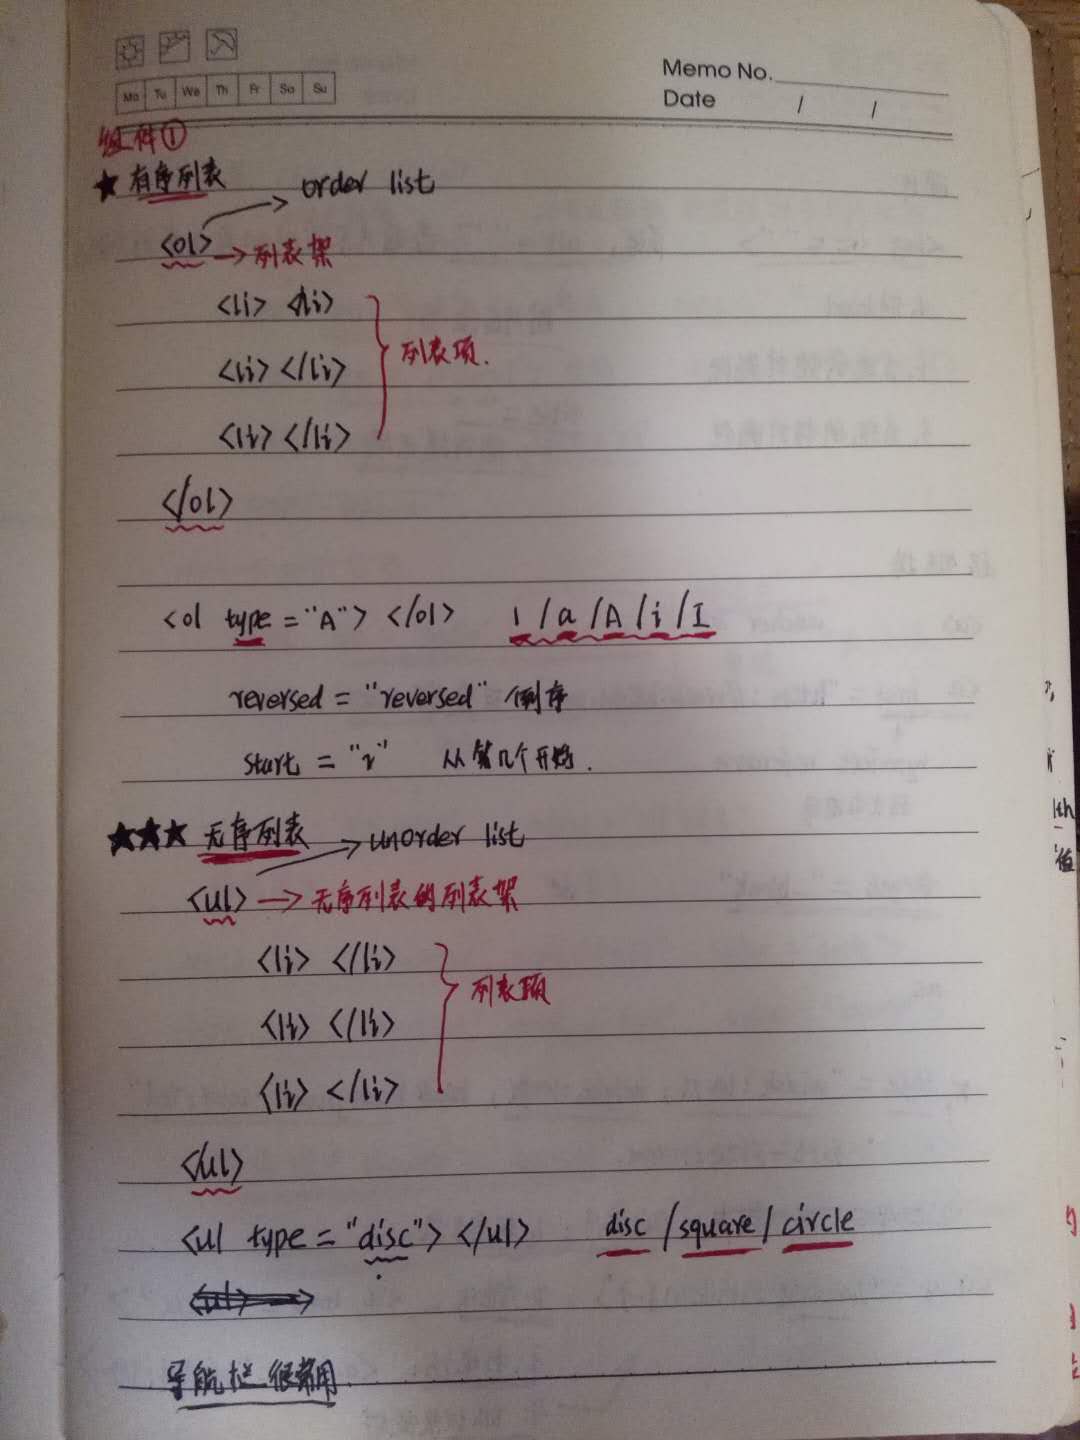 Mo Tu We Th Fr Sa Su
Memo No.
Date / /
组件①
★ 有序列表 → order list
<ol> → 列表架
<li> </li>
<li> </li> 列表项.
<li> </li>
</ol>
<ol type = "A"> </ol> 1 / a / A / i / I
reversed = "reversed" 倒序
start = "2" 从第几个开始.
★★★ 无序列表 → unorder list
<ul> → 无序列表的列表架
<li> </li>
<li> </li> 列表项
<li> </li>
</ul>
<ul type = "disc"> </ul> disc / square / circle
导航栏 很常用